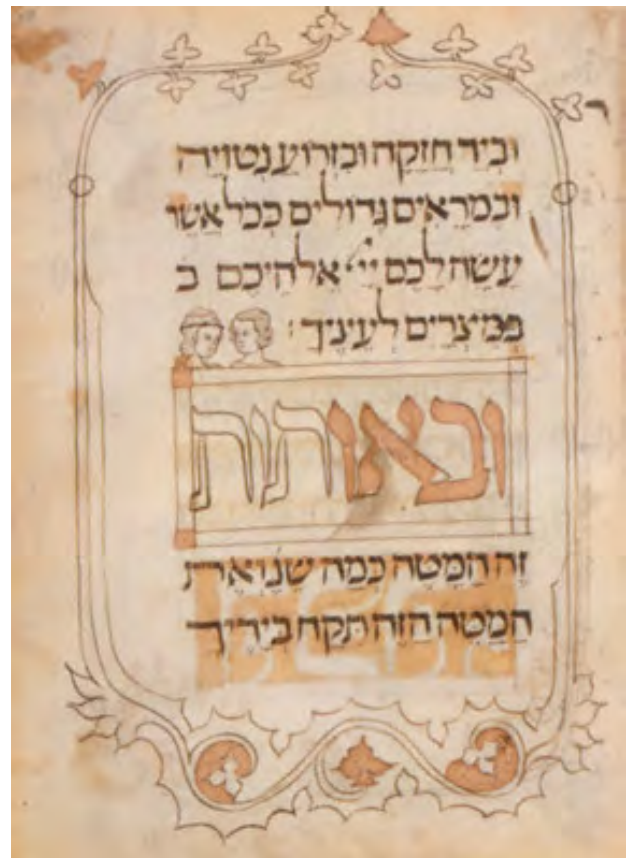 וביד חזקה ובזרוע נטויה
ובמראים גדולים ככל אשר
עשה לכם יי' אלהיכם ב
במיצרים לעיניך:
ובאותות
זה המטה כמה שנ' ואת
המטה הזה תקח בידיך